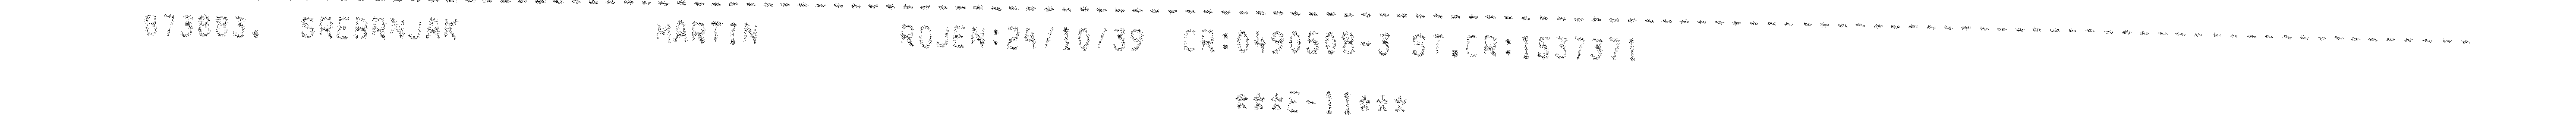 873883. SREBRNJAK MARTIN ROJEN:24/10/39 CR:0490508-3 ST.CR:1537371
***E-11***